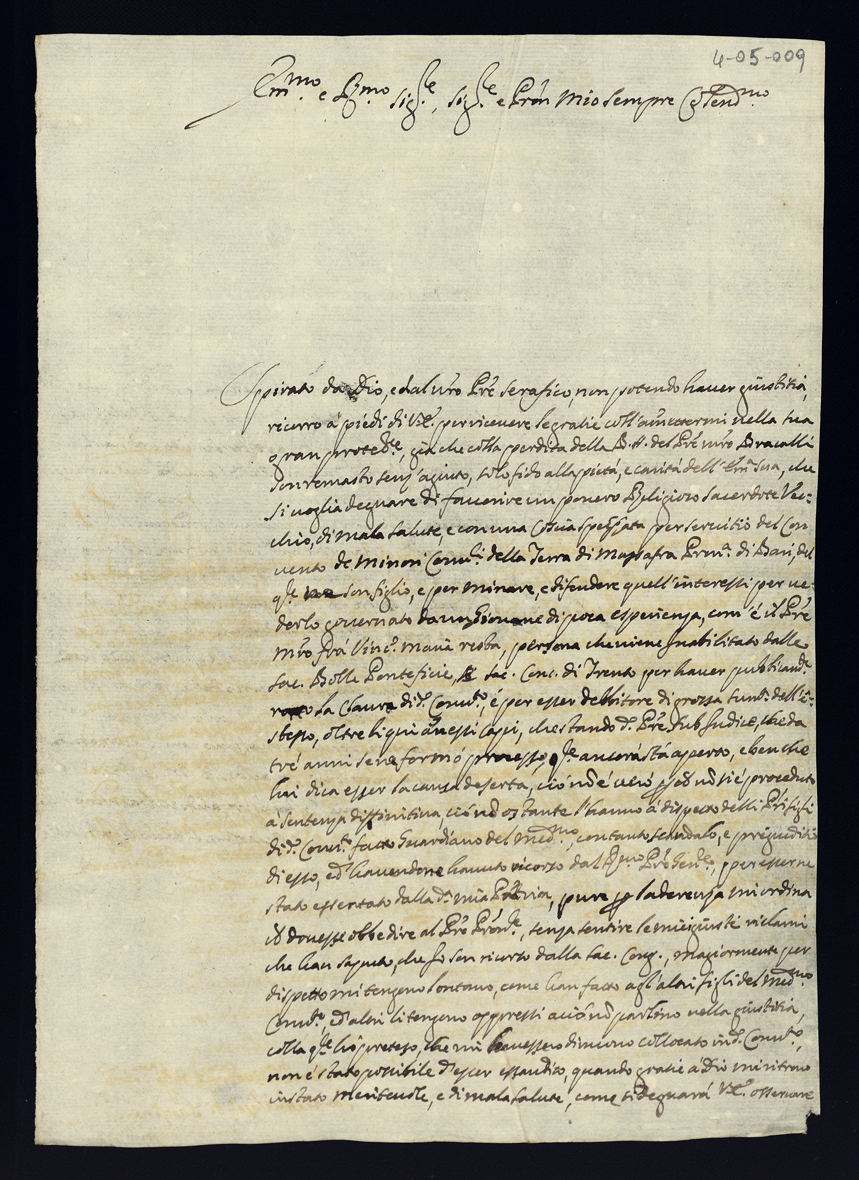 4-05-009
Em.mo e R.mo Sig.re, Sig.re e Prōn mio sempre Col.end.mo
Ispirato da Dio, e dal nr̄o Prē Serafico, non potendo haver giustitia,
ricorro a' piedi di V.E. per ricevere le gratie coll'ammettermi nella sua
gran protet.ne, già che colla perdita della B. A. del Prē mr̄o Bracalli
son remasto senz'agiuto, solo fido alla pietà, e carità dell'Em. Sua, che
si voglia degnare di favorire un povero Religioso Sacerdote Vec=
chio, di mala salute, e con una Coscia spezzata per servitio del Con
vento de Minori Conv.li della Terra di Massafra Prov.a di Bari, del
q.le son figlio, e per mirare, e difendere quell'interessi per ve=
derlo governato da un Giovane di poca esperienza, com'è il Prē
Mr̄o frà Vinc.o Maria persona che viene inabilitato dalle
Sac. Bolle Pontificie, e Sac. Conc. di Trento per haver
la Clausa di d.o Conv.to, è per esser debbitore di grossa sum.a dell'i=
stesso, oltre li qui annessi Capi, che stando d.o Prē sub Judice, che da
trè anni se ne formò processo, q.le ancora stà aperto, e ben che
lui dica esser la causa deserta, ciò nō è vero nō si è proceduto
à sentenza diffinitiva, ciò nō ostante l'hanno à dispetto delli Prī figli
di d.o Conv.to fatto Guardiano del med.mo, con tanto scandalo, e pregiuditio
di esso, ed havendone havuto ricorso dal R.mo Prē Gen.le, per esserne
stato esentato dalla d.a mia Provin.a, pure mi ordina
dovesse obbedire al Prē Prov.le, senza sentire le miei giusti reclami
che han saputo, che fo son ricorso dalla Sac. Cong., magiormente per
dispetto mi tengono lontano, come han fatto agl'altri figli del med.mo
Conv.to, ed altri li tengono oppressi acciò nō parlino nella giustitia,
colla q.le hò preteso, che mi havessero dimeno collocato in d.o Conv.to,
non è stato possibile d'esser essaudito, quando gratie a Dio mi ritrovo
in stato meritevole, e di mala salute, come si degnarà V.E. osservare